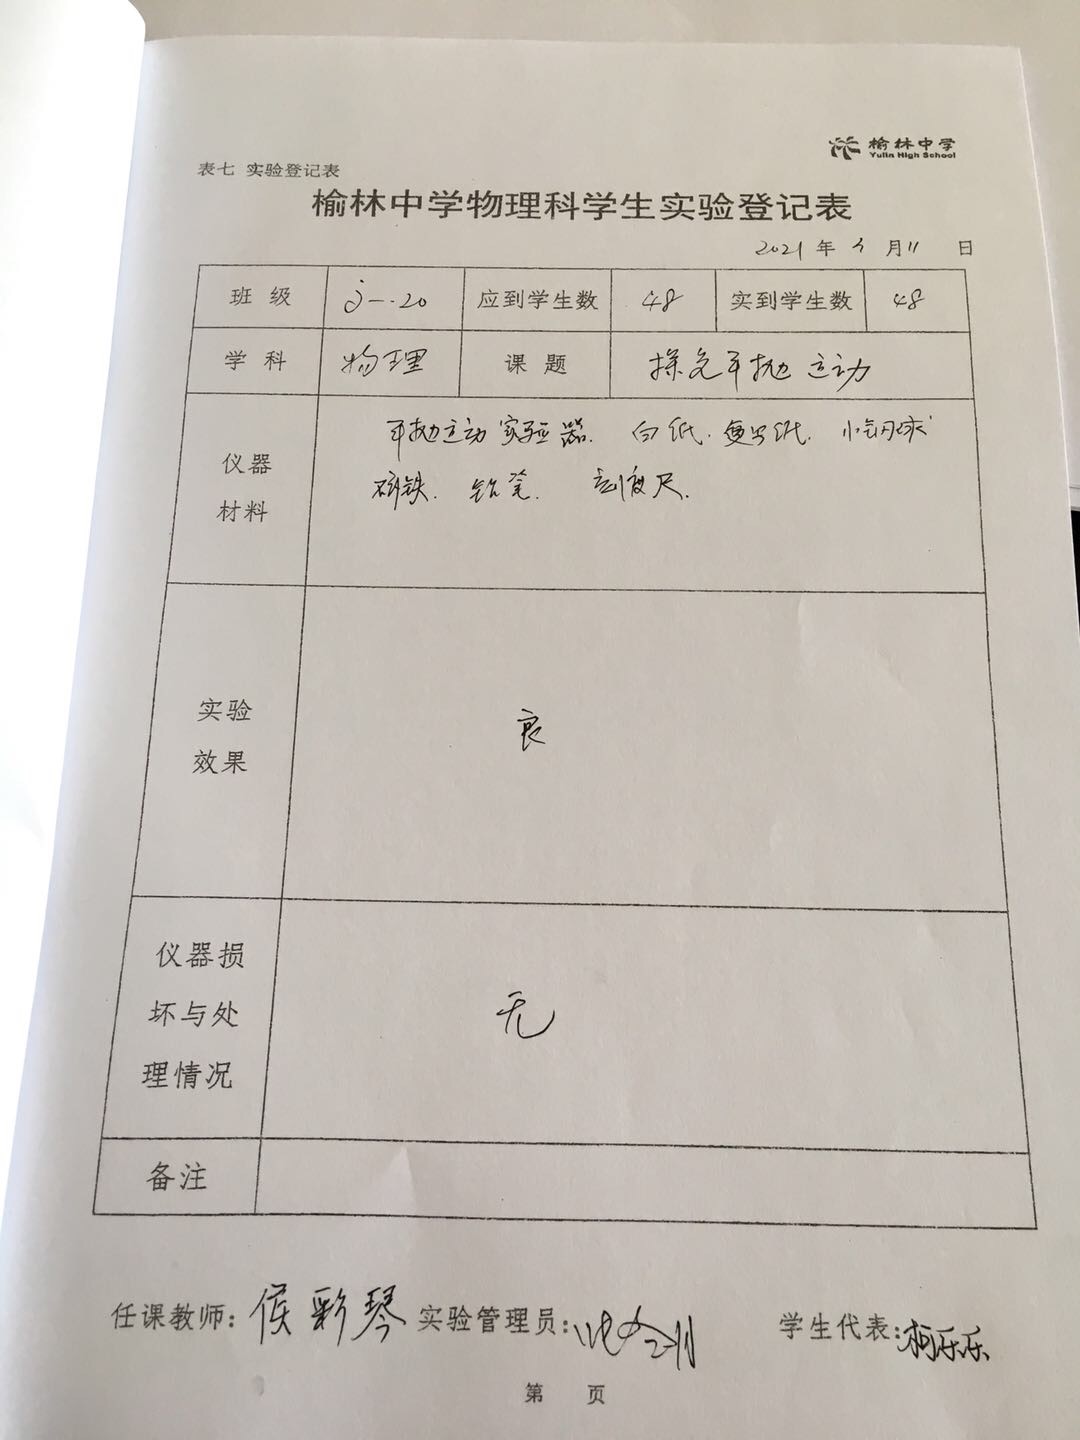 榆林中学
Yulin High School
表七 实验登记表
榆林中学物理科学生实验登记表
2021 年 月 11 日
班 级 20 应到学生数 48 实到学生数 48
学 科 物理 课 题 探究平抛运动
仪器
材料
平抛运动实验器. 白纸. 复写纸. 小钢球
磁铁. 铅笔. 刻度尺.
实验
效果
良
仪器损
坏与处
理情况
无
备注
任课教师: 侯彩琴 实验管理员: 学生代表: 柯乐乐
第 页